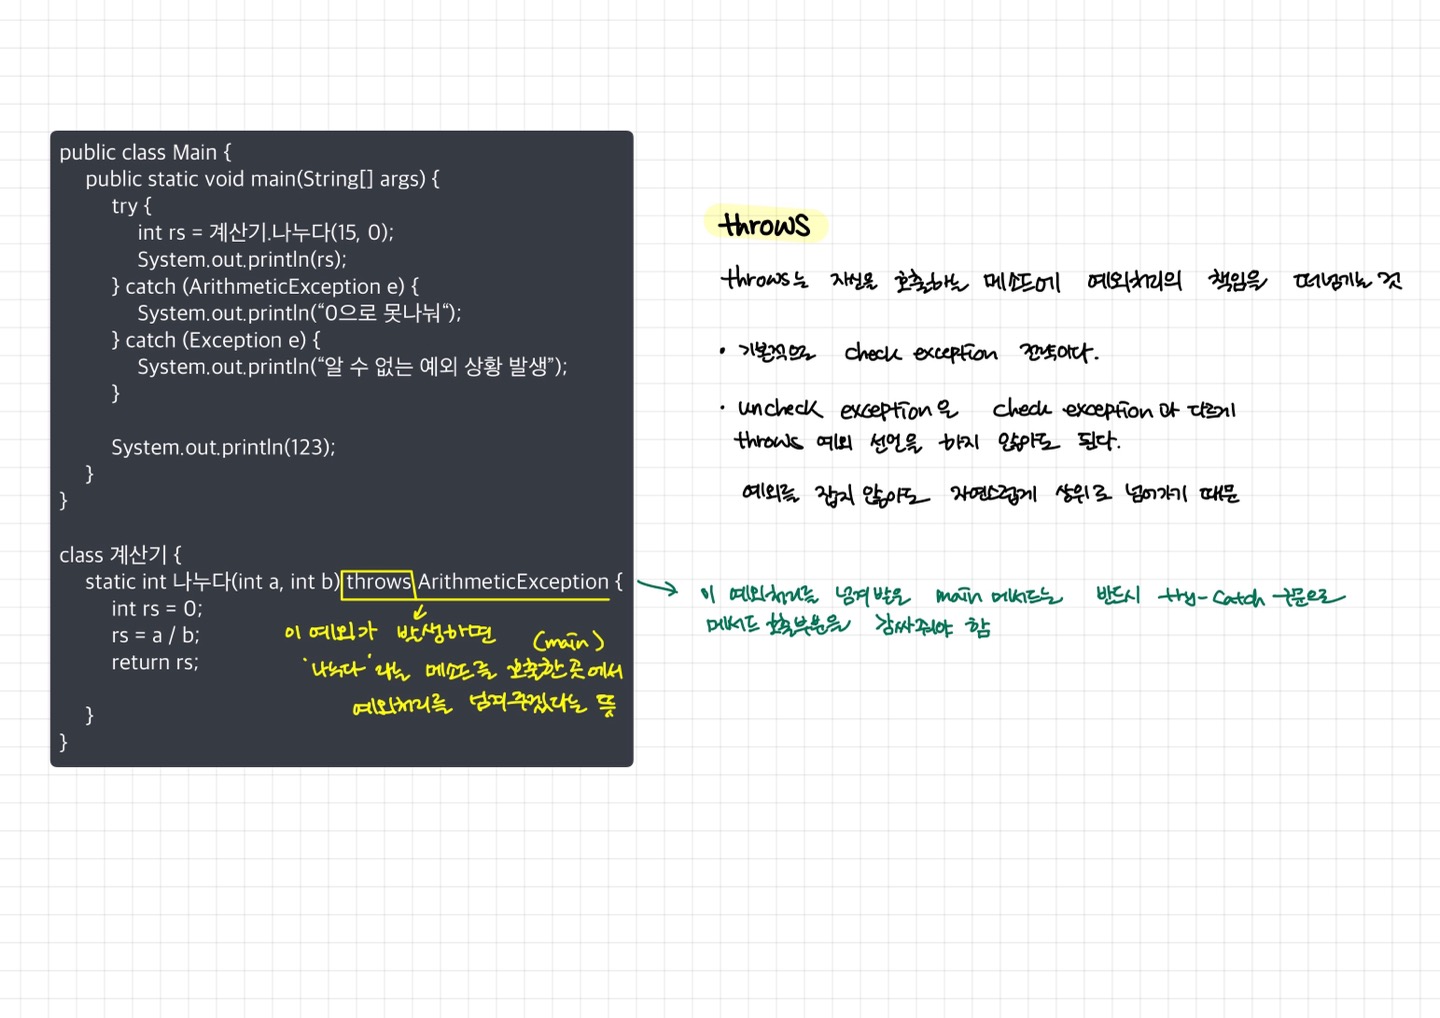 public class Main {
public static void main(String[] args) {
try {
int rs = 계산기.나누다(15, 0);
System.out.println(rs);
} catch (ArithmeticException e) {
System.out.println(“0으로 못나눠“);
} catch (Exception e) {
System.out.println(“알 수 없는 예외 상황 발생”);
}
System.out.println(123);
}
}
class 계산기 {
static int 나누다(int a, int b) throws ArithmeticException {
int rs = 0;
rs = a / b;
return rs;
}
}
이 예외가 발생하면
(main)
'나누다'라는 메소드를 호출한 곳에서
예외처리를 넘겨주겠다는 뜻
throws
throws는 자신을 호출하는 메소드에 예외처리의 책임을 떠넘기는 것
• 기본적으로 check exception 전략이다.
• uncheck exception은 check exception과 다르게
throws 예외 선언을 하지 않아도 된다.
예외를 잡지 않아도 자연스럽게 상위로 넘어가기 때문
이 예외처리를 넘겨받은 main 메서드는 반드시 try-catch 구문으로
메서드 호출부분을 감싸줘야 함